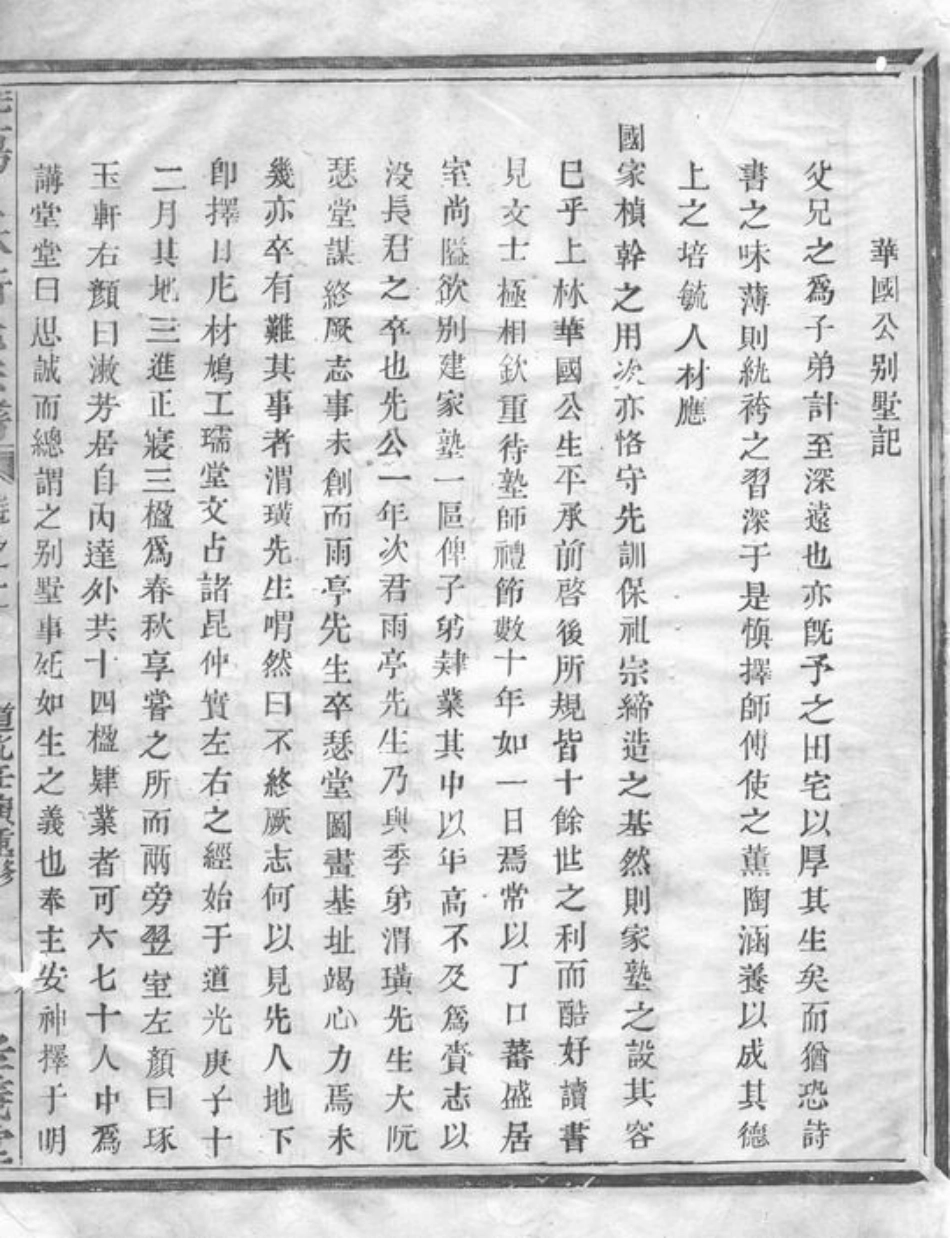 華國公別墅記
父兄之爲子弟計至深遠也亦旣予之田宅以厚其生矣而猶恐詩
書之味薄則紈袴之習深于是愼擇師傅使之薰陶涵養以成其德
上之培毓人材應
國家楨幹之用次亦恪守先訓保祖宗締造之基然則家塾之設其容
已乎上林華國公生平承前啓後所規皆十餘世之利而酷好讀書
見文士極相欽重待塾師禮節數十年如一日焉常以丁口蕃盛居
室尚隘欲別建家塾一區俾子弟肄業其中以年高不及爲賫志以
没長君之卒也先公一年次君雨亭先生乃與季弟渭璜先生大阮
瑟堂謀終厥志事未創而雨亭先生卒瑟堂圖畫基址竭心力焉未
幾亦卒有難其事者渭璜先生喟然曰不終厥志何以見先人地下
卽擇日庀材鳩工瑞堂文占諸昆仲實左右之經始于道光庚子十
二月其地三進正寢三楹爲春秋享嘗之所而兩旁翌室左顏曰琢
玉軒右顏曰漱芳居自內達外共十四楹肄業者可六七十人中爲
講堂堂曰思誠而總謂之別墅事死如生之義也奉主安神擇于明